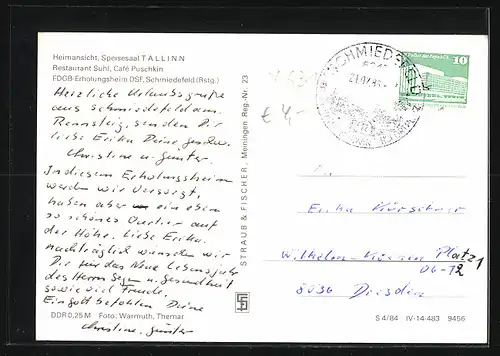 Heimansicht, Speisesaal TALLINN
Restaurant Suhl, Café Puschkin
FDGB-Erholungsheim DSF, Schmiedefeld (Rstg.)
Herzliche Urlaubsgrüße
aus Schmiedefeld am
Rennsteig, senden Dir
liebe Erika Deine
Christine u. Günter.
In diesem Erholungsheim
werden wir versorgt,
haben aber ein eben
so schönes Quartier auf
der Höhe. Liebe Erika.
nachträglich wünschen wir
Dir für das Neue Lebensjahr
des Herrn Segen u. Gesundheit
sowie viel Freude.
Ein Gott befohlen Deine
Christine, Günter
DDR 0,25 M Foto: Warmuth, Themar
STRAUB & FISCHER, Meiningen Reg.-Nr. 23
€ 4,-
SCHMIEDEFELD
10
Erika Kürschner
Wilhelm-Külz Platz 1
06-12
8036 Dresden
S 4/84 IV-14-483 9456